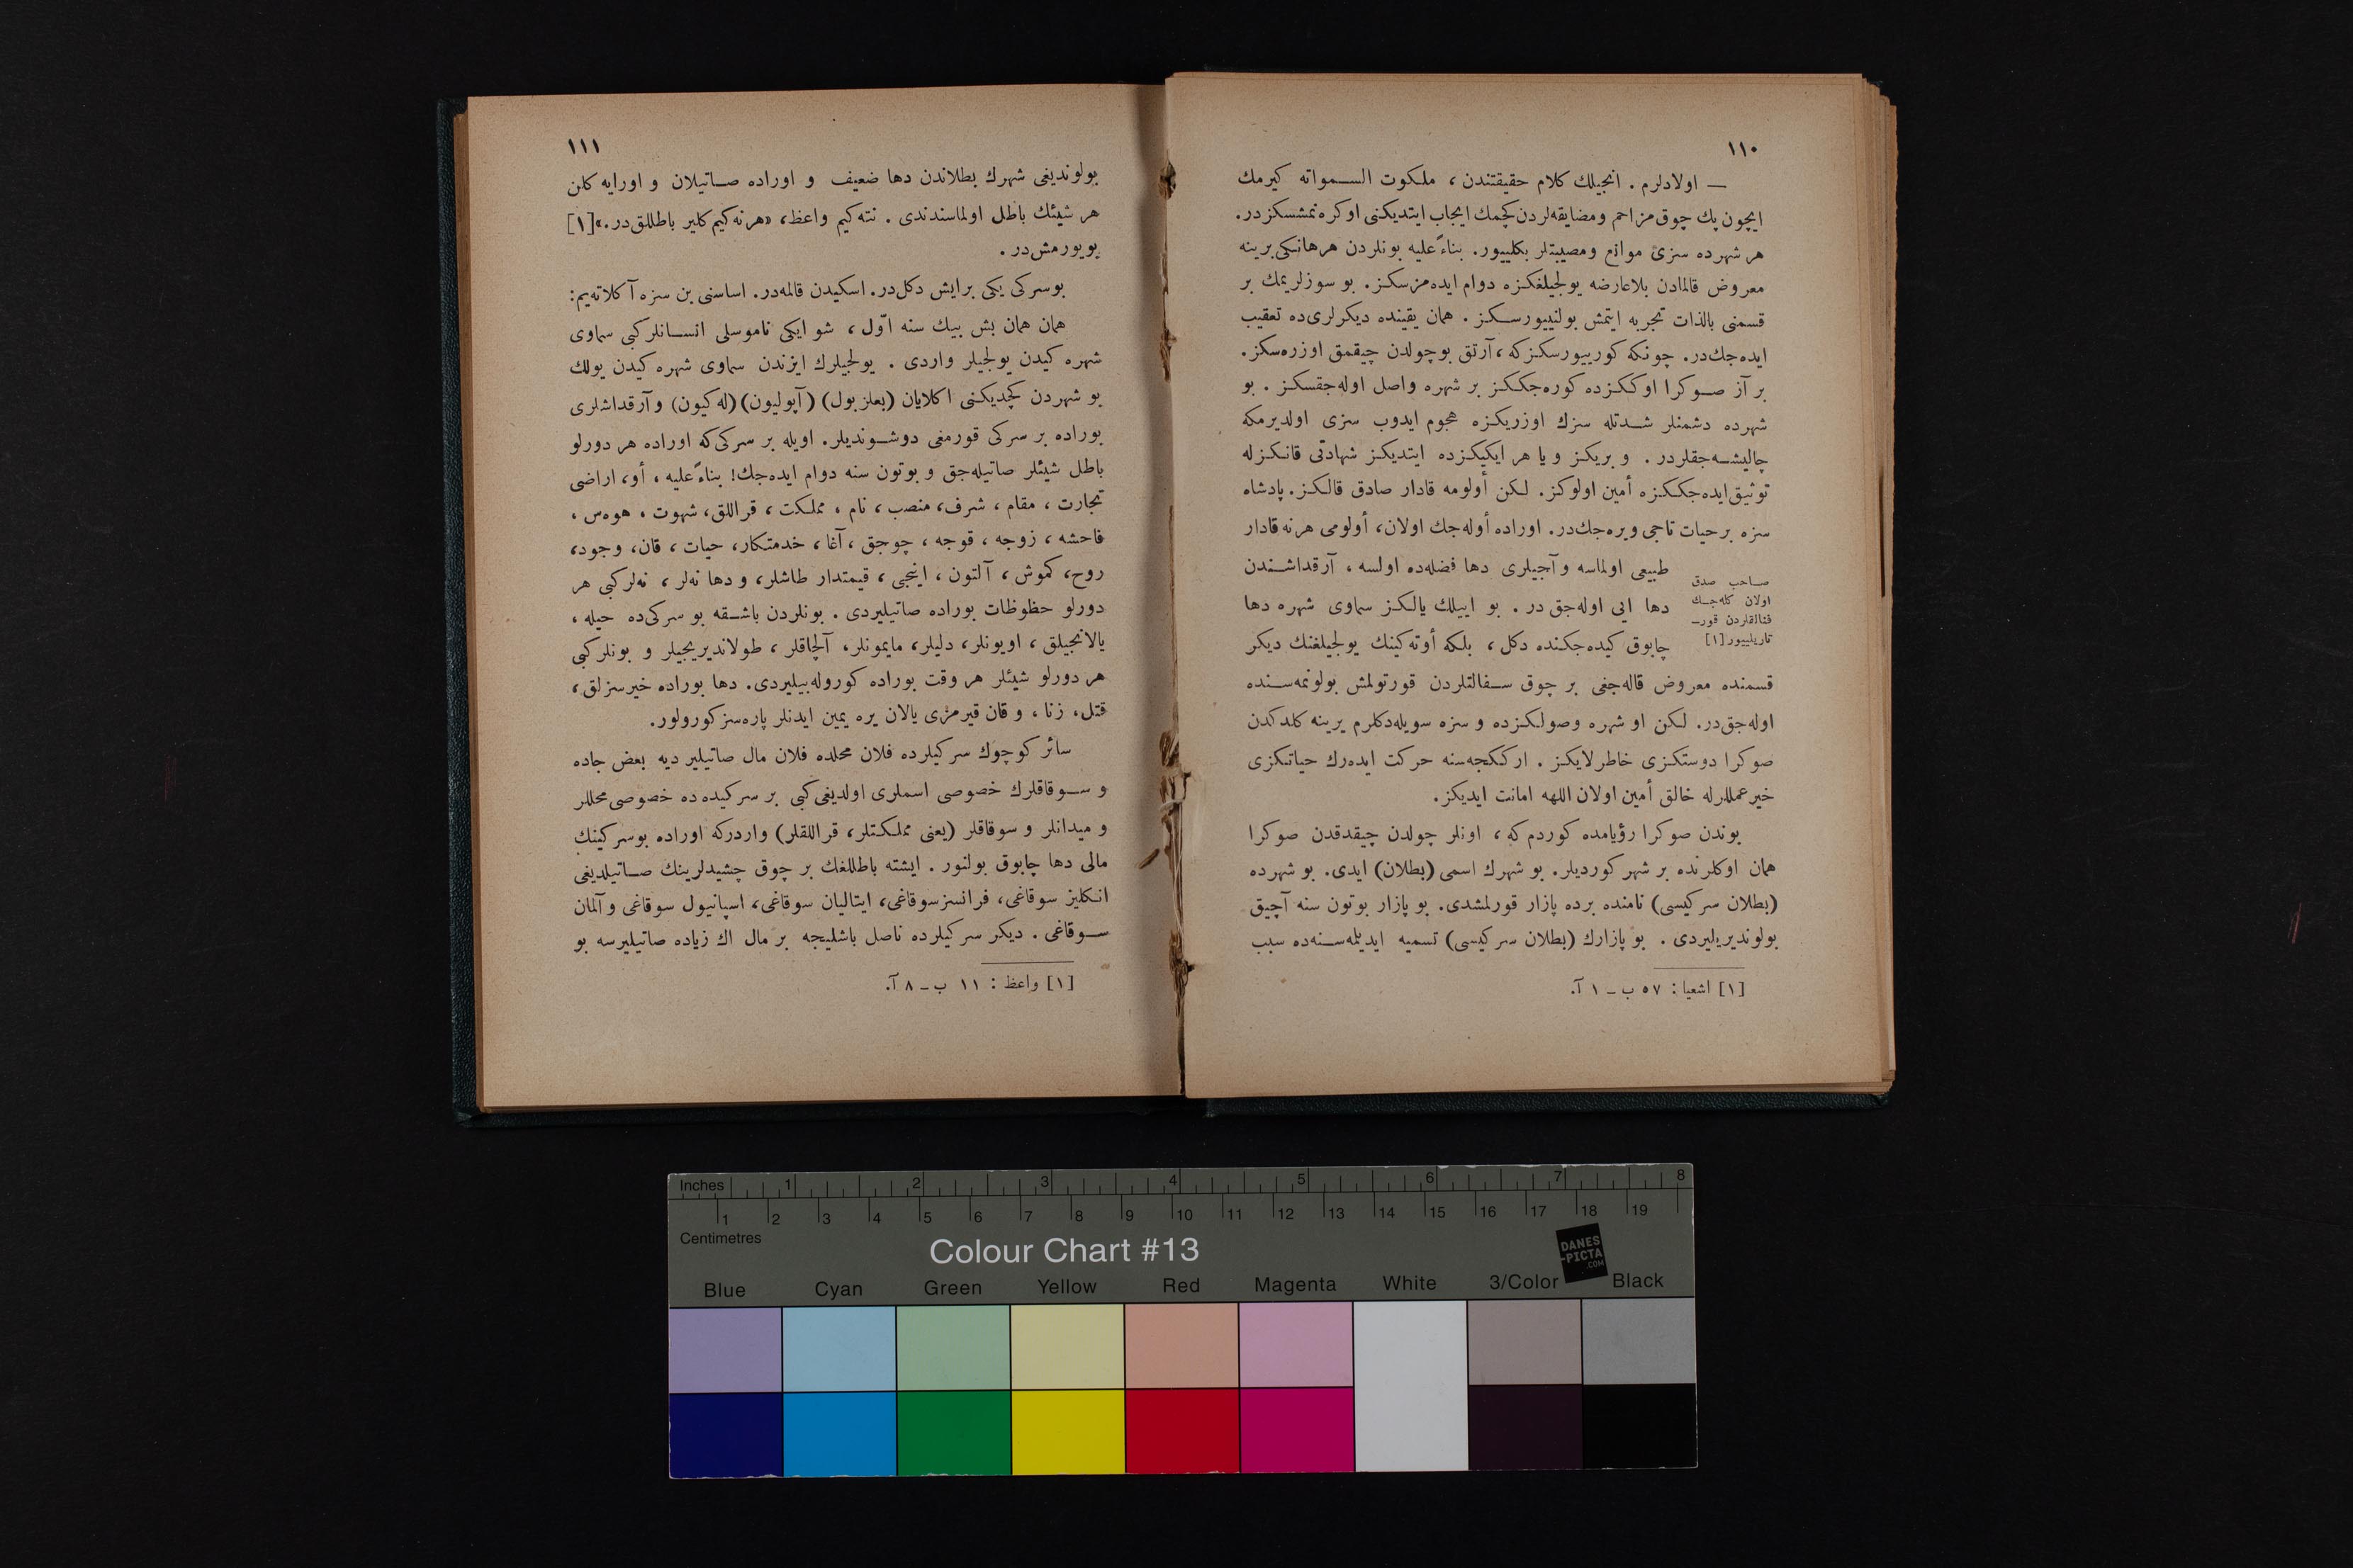 ١١٠
— اولادلرم . انجيلك كلام حقيقتندن ، ملكوت السمواته كيرمك
ايچون پك چوق مزاحم ومضايقه‌لردن كچمك ايجاب ايتديكنى اوكره‌نمشسكزدر.
هر شهرده سزى موانع ومصيبتلر بكلييور. بناءً عليه بونلردن هرهانكى برينه
معروض قالمادن بلاعارضه يولجيلغكزه دوام ايده‌مزسكز. بو سوزلريمك بر
قسمنى بالذات تجربه ايتمش بولنييورسكز . همان يقينده ديكرلرى‌ده تعقيب
ايده‌جك‌در. چونكه كورييورسكزكه ، آرتق بوچولدن چيقمق اوزره‌سكز.
بر آز صوكرا اوككزده كوره‌جككز بر شهره واصل اوله‌جقسكز . بو
شهرده دشمنلر شدتله سزك اوزريكزه هجوم ايدوب سزى اولديرمكه
چاليشه‌جقلردر . و بريكز و يا هر ايكيكزده ايتديكز شهادتى قانكزله
توثيق ايده‌جككزه أمين اولوكز. لكن أولومه قادار صادق قالكز. پادشاه
سزه برحيات تاجى ويره‌جك‌در. اوراده أوله‌جك اولان، أولومى هرنه قادار
طبيعى اولماسه وآجيلرى دها فضله‌ده اولسه ، آرقداشندن
دها ايى اوله‌جق در . بو اييلك يالكز سماوى شهره دها
چابوق كيده‌جكنده دكل ، بلكه أوته‌كينك يولجيلغنك ديكر
صاحب صدق
اولان كله‌جك
فنالقلردن قور-
تاريلييور [١]
قسمنده معروض قاله‌جغى بر چوق سفالتلردن قورتولمش بولونمه‌سنده
اوله‌جق‌در. لكن او شهره وصولكزده و سزه سويله‌دكلرم يرينه كلدكدن
صوكرا دوستكزى خاطرلايكز . اركككجه‌سنه حركت ايده‌رك حياتكزى
خيرعمللرله خالق أمين اولان اللهه امانت ايديكز.
بوندن صوكرا رؤيامده كوردم كه ، اونلر چولدن چيقدقدن صوكرا
همان اوكلرنده بر شهر كورديلر. بو شهرك اسمى (بطلان) ايدى. بو شهرده
(بطلان سركيسى) نامنده برده پازار قورلمشدى. بو پازار بوتون سنه آچيق
بولونديريليردى . بو پازارك (بطلان سركيسى) تسميه ايديلمه‌سنه‌ده سبب
[١] اشعيا : ٥٧ ب ـ ١ آ.
١١١
بولونديغى شهرك بطلاندن دها ضعيف و اوراده صاتيلان و اورايه كلن
هر شيئك باطل اولماسندندى . نته‌كيم واعظ، «هرنه‌كيم كلير باطللق‌در.»[١]
بويورمش‌در .
بوسركى يكى برايش دكل‌در. اسكيدن قالمه‌در. اساسنى بن سزه آكلاته‌يم:
همان همان بش بيك سنه اوّل ، شو ايكى ناموسلى انسانلركبى سماوى
شهره كيدن يولجيلر واردى . يولجيلرك ايزندن سماوى شهره كيدن يولك
بو شهردن كچديكنى اكلايان (بعلزبول) (آپوليون) (له‌كيون) وآرقداشلرى
بوراده بر سركى قورمغى دوشونديلر. اويله بر سركى‌كه اوراده هر دورلو
باطل شيئلر صاتيله‌جق و بوتون سنه دوام ايده‌جك! بناءً عليه ، أو، اراضى
تجارت ، مقام ، شرف، منصب ، نام ، مملكت ، قراللق، شهوت ، هوس ،
فاحشه ، زوجه ، قوجه ، چوجق ، آغا ، خدمتكار، حيات ، قان، وجود،
روح، كموش ، آلتون ، اينجى ، قيمتدار طاشلر، و دها نه‌لر ، نه‌لر كبى هر
دورلو حظوظات بوراده صاتيليردى . بونلردن باشقه بو سركى‌ده حيله ،
يالانجيلق ، اويونلر، دليلر، مايمونلر، آلچاقلر ، طولانديريجيلر و بونلر كبى
هر دورلو شيئلر هر وقت بوراده كوروله‌بيليردى. دها بوراده خيرسزلق،
قتل، زنا ، و قان قيرمزى يالان يره يمين ايدنلر پاره‌سز كورولور.
سائر كوچوك سركيلرده فلان محلده فلان مال صاتيلير ديه بعض جاده
و سوقاقلرك خصوصى اسملرى اولديغى كبى بر سركيده ده خصوصى محللر
و ميدانلر و سوقاقلر (يعنى مملكتلر، قراللقلر) واردركه اوراده بوسركينك
مالى دها چابوق بولنور . ايشته باطللغك بر چوق چشيدلرينك صاتيلديغى
انكليز سوقاغى، فرانسز سوقاغى، ايتاليان سوقاغى، اسپانيول سوقاغى و آلمان
سوقاغى . ديكر سركيلرده ناصل باشليجه بر مال اك زياده صاتيليرسه بو
[١] واعظ : ١١ ب ـ ٨ آ.
Inches 1 2 3 4 5 6 7 8
1 2 3 4 5 6 7 8 9 10 11 12 13 14 15 16 17 18 19
Centimetres
Colour Chart #13
DANES
-PICTA
.COM
Blue Cyan Green Yellow Red Magenta White 3/Color Black